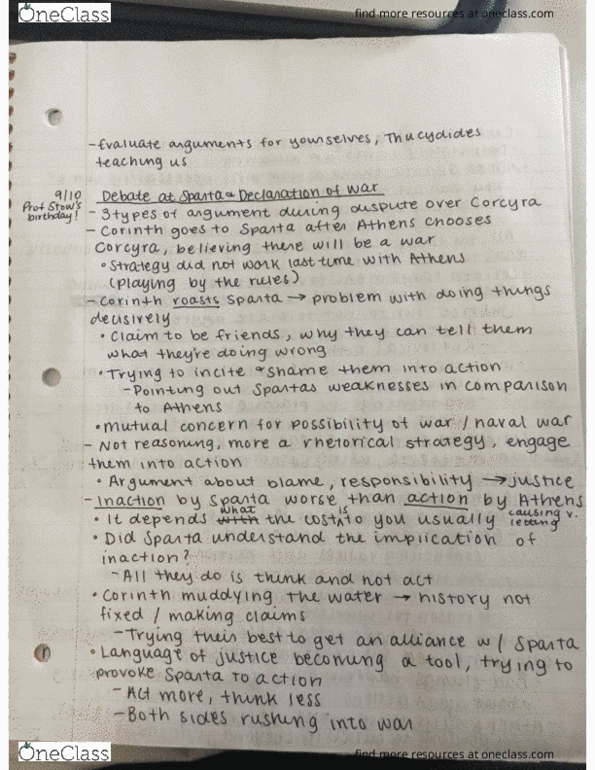 OneClass
find more resources at oneclass.com
- Evaluate arguments for yourselves, Thucydides
teaching us
9/10
Prof Stow's
birthday!
Debate at Sparta & Declaration of War
- 3 types of argument during dispute over Corcyra
- Corinth goes to Sparta after Athens chooses
Corcyra, believing there will be a war
• Strategy did not work last time with Athens
(playing by the rules)
- Corinth roasts Sparta → problem with doing things
decisively
• Claim to be friends, why they can tell them
what they're doing wrong
• Trying to incite & shame them into action
- Pointing out Spartas weaknesses in comparison
to Athens
• mutual concern for possibility of war / naval war
- Not reasoning, more a rhetorical strategy, engage
them into action
• Argument about blame, responsibility → justice
- Inaction by Sparta worse than action by Athens
• It depends with what the cost is to you usually causing v. letting
• Did Sparta understand the implication of
inaction?
- All they do is think and not act
• Corinth muddying the water → history not
fixed / making claims
- Trying their best to get an alliance w/ Sparta
• Language of justice becoming a tool, trying to
provoke Sparta to action
- Act more, think less
- Both sides rushing into war
OneClass
find more resources at oneclass.com